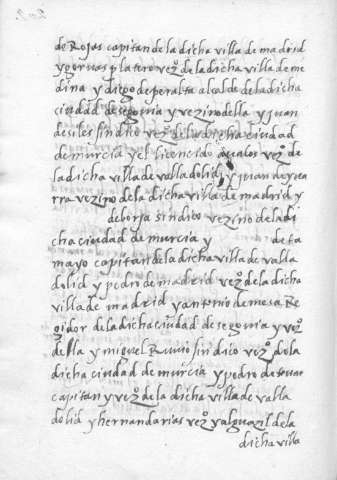 de Rojas capitan de la dicha villa de madrid
y platero vezº de la dicha villa de me
dina y diego de peralta alcalde de la dicha
ciudad de segouia y vezino della y juan
de siles sindico vezº de la dicha ciudad
de murcia y el licenciado vezº de
la dicha villa de valladolid y juan de
rra vezino de la dicha villa de madrid y
de borja sindico vezino de la di
cha ciudad de murcia y de ta
mayo capitan de la dicha villa de valla
dolid y pedro de madrid vezº de la dicha
villa de madrid y antonio de mesa Re
gidor de la dicha ciudad de segouia y vezº
de lla y miguel Ruuio sindico vezº de la
dicha ciudad de murcia y pedro de
capitan y vezº de la dicha villa de valla
dolid y hernand arias vezº y alguazil de la
dicha villa